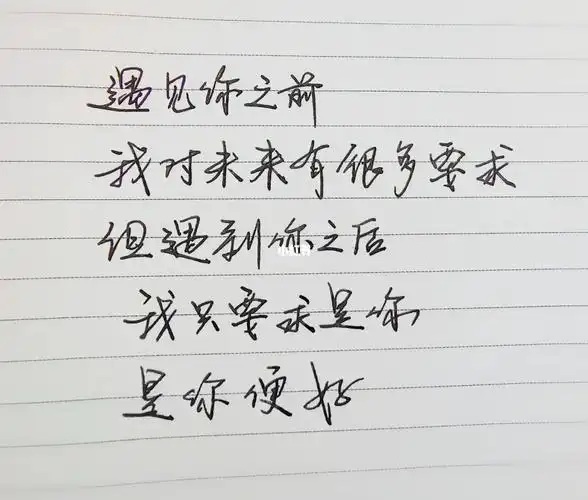 遇见你之前
我对未来有很多要求
但遇到你之后
我只要求是你
是你便好